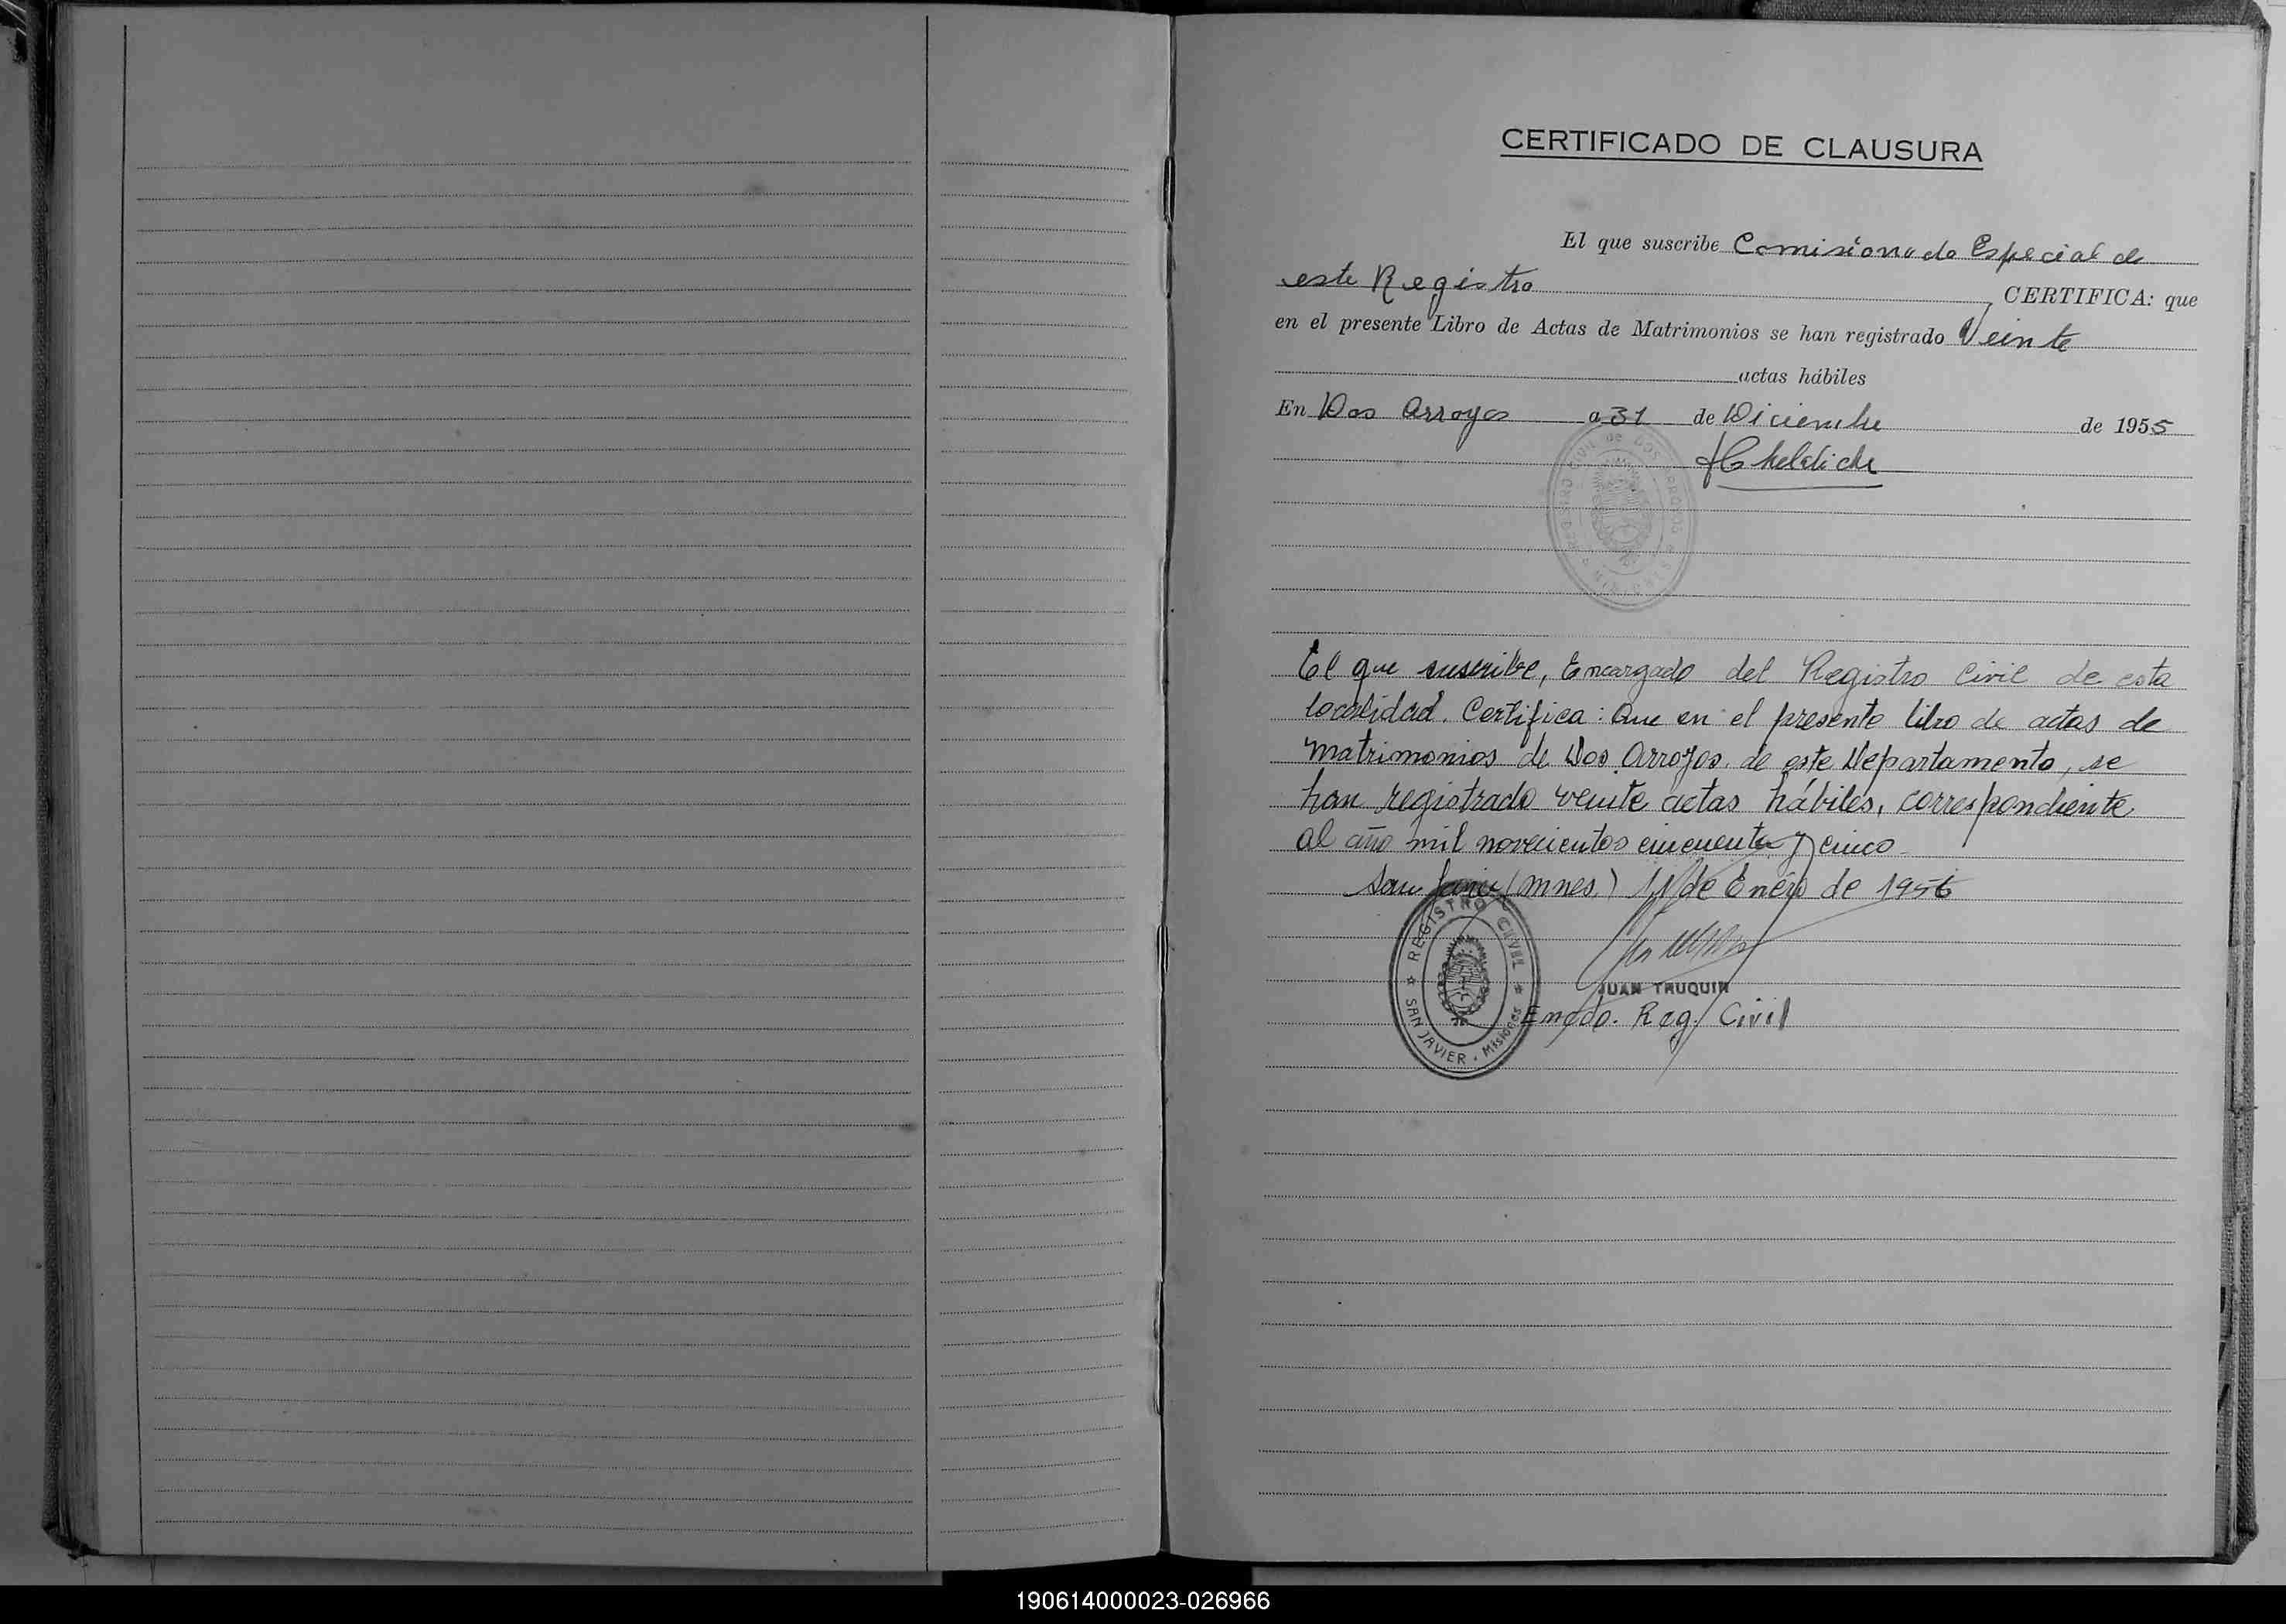 CERTIFICADO DE CLAUSURA
El que suscribe Comisionado Especial de
este Registro, CERTIFICA: que
en el presente Libro de Actas de Matrimonios se han registrado Veinte
actas hábiles
En Dos Arroyos a 31 de Diciembre de 1955
El que suscribe, Encargado del Registro Civil de esta
localidad. Certifica: Que en el presente libro de actas de
matrimonios de Dos Arroyos de este Departamento, se
han registrado veinte actas hábiles, correspondiente
al año mil novecientos cincuenta y cinco
San Javier (mnes.) 11 de Enero de 1956
REGISTRO CIVIL
SAN JAVIER - Misiones
JUAN TRUQUIN
Encdo. Reg. Civil
190614000023-026966